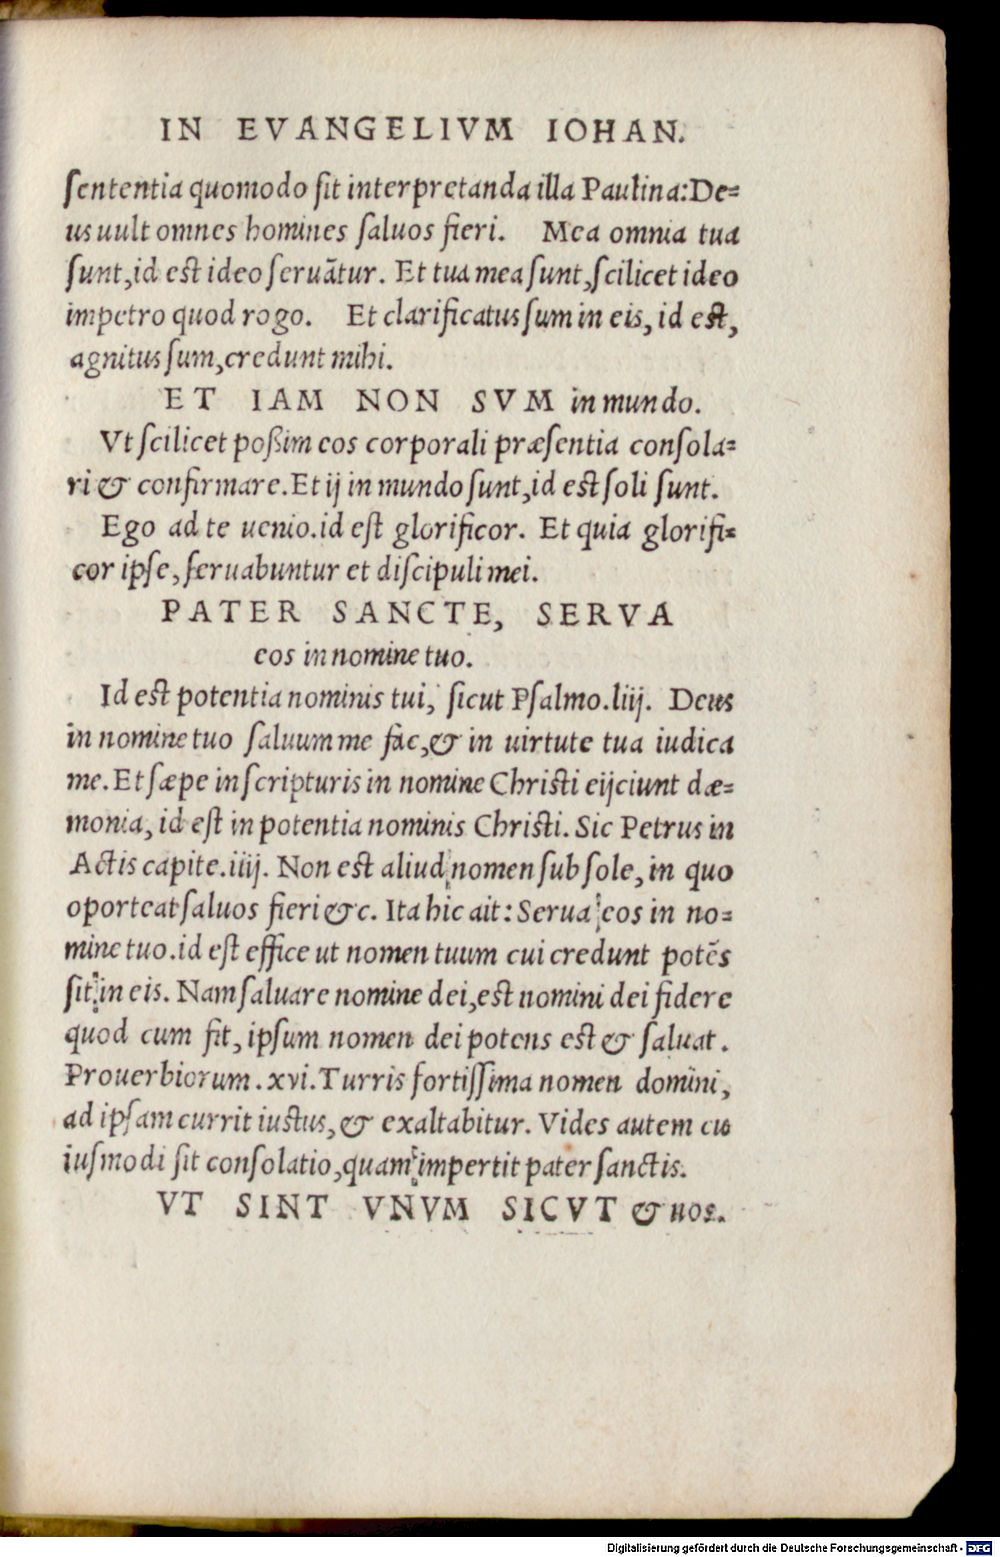 IN EVANGELIVM IOHAN.
sententia quomodo sit interpretanda illa Paulina:De=
us uult omnes homines saluos fieri. Mea omnia tua
sunt,id est ideo seruātur. Et tua mea sunt,scilicet ideo
impetro quod rogo. Et clarificatus sum in eis, id est,
agnitus sum,credunt mihi.
ET IAM NON SVM in mundo.
Vt scilicet poßim eos corporali præsentia consola=
ri & confirmare.Et ij in mundo sunt,id est soli sunt.
Ego ad te uenio.id est glorificor. Et quia glorifi=
cor ipse, seruabuntur et discipuli mei.
PATER SANCTE, SERVA
eos in nomine tuo.
Id est potentia nominis tui, sicut Psalmo.liij. Deus
in nomine tuo saluum me fac,& in uirtute tua iudica
me. Et sæpe in scripturis in nomine Christi eijciunt dæ=
monia, id est in potentia nominis Christi. Sic Petrus in
Actis capite.iiij. Non est aliud nomen sub sole, in quo
oporteat saluos fieri &c. Ita hic ait: Serua eos in no=
mine tuo.id est effice ut nomen tuum cui credunt potēs
sit in eis. Nam saluare nomine dei,est nomini dei fidere
quod cum fit, ipsum nomen dei potens est & saluat.
Prouerbiorum.xvi.Turris fortissima nomen domini,
ad ipsam currit iustus,& exaltabitur. Vides autem cu
iusmodi sit consolatio,quam impertit pater sanctis.
VT SINT VNVM SICVT & nos.
Digitalisierung gefördert durch die Deutsche Forschungsgemeinschaft - DFG